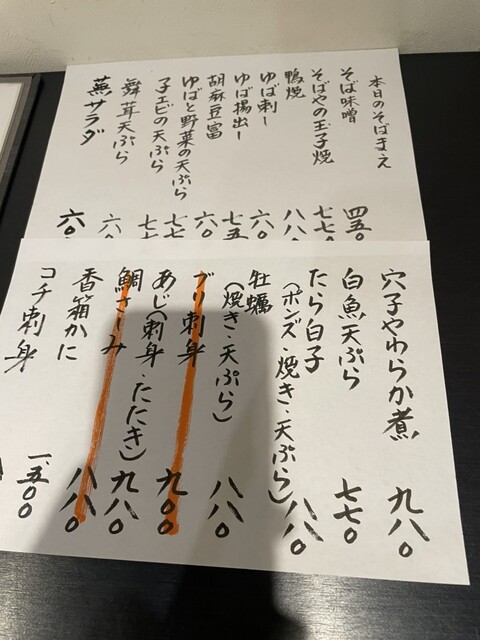 本日のそばまえ
そば味噌 四五〇
そばやの玉子焼 七七〇
鴨焼 八八〇
ゆば刺し 六〇
ゆば揚出し 七五
胡麻豆富 六〇
ゆばと野菜の天ぷら 七七
子エビの天ぷら 七七
舞茸天ぷら 六〇
蕪サラダ 六〇
穴子やわらか煮 九八〇
白魚天ぷら 七七〇
たら白子
(ポンズ・焼き・天ぷら) 八八〇
牡蠣
(焼き・天ぷら) 八八〇
ブリ刺身 九〇〇
あじ(刺身・たたき) 九八〇
鯛さしみ 八八〇
香箱かに 一、五〇〇
コチ刺身